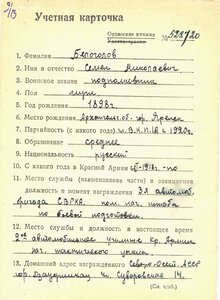 Учетная карточка
Орденская книжка
№ 528720
1. Фамилия Белоголов
2. Имя и отчество Семен Николаевич
3. Воинское звание подполковник
4. Пол муж.
5. Год рождения 1898 г.
6. Место рождения обл. гор. Яренск
7. Партийность (с какого года) чл. В.К.П.(б) с 1920 г.
8. Образование среднее
9. Национальность русский
10. С какого года в Красной Армии с 1918 г. - по
11. Место службы (наименование части) и занимаемая
должность в момент награждения 3я автомоб.
бригада СВРКА. пом. нач. штаба
по боевой подготовки
12. Место службы и должность в настоящее время
2ое автомобильное училище Кр. Армии
нач. тактического цикла.
13. Домашний адрес награжденного АССР
гор. Дзауджикау ул. Суворовская 14.
(См. н/об.)